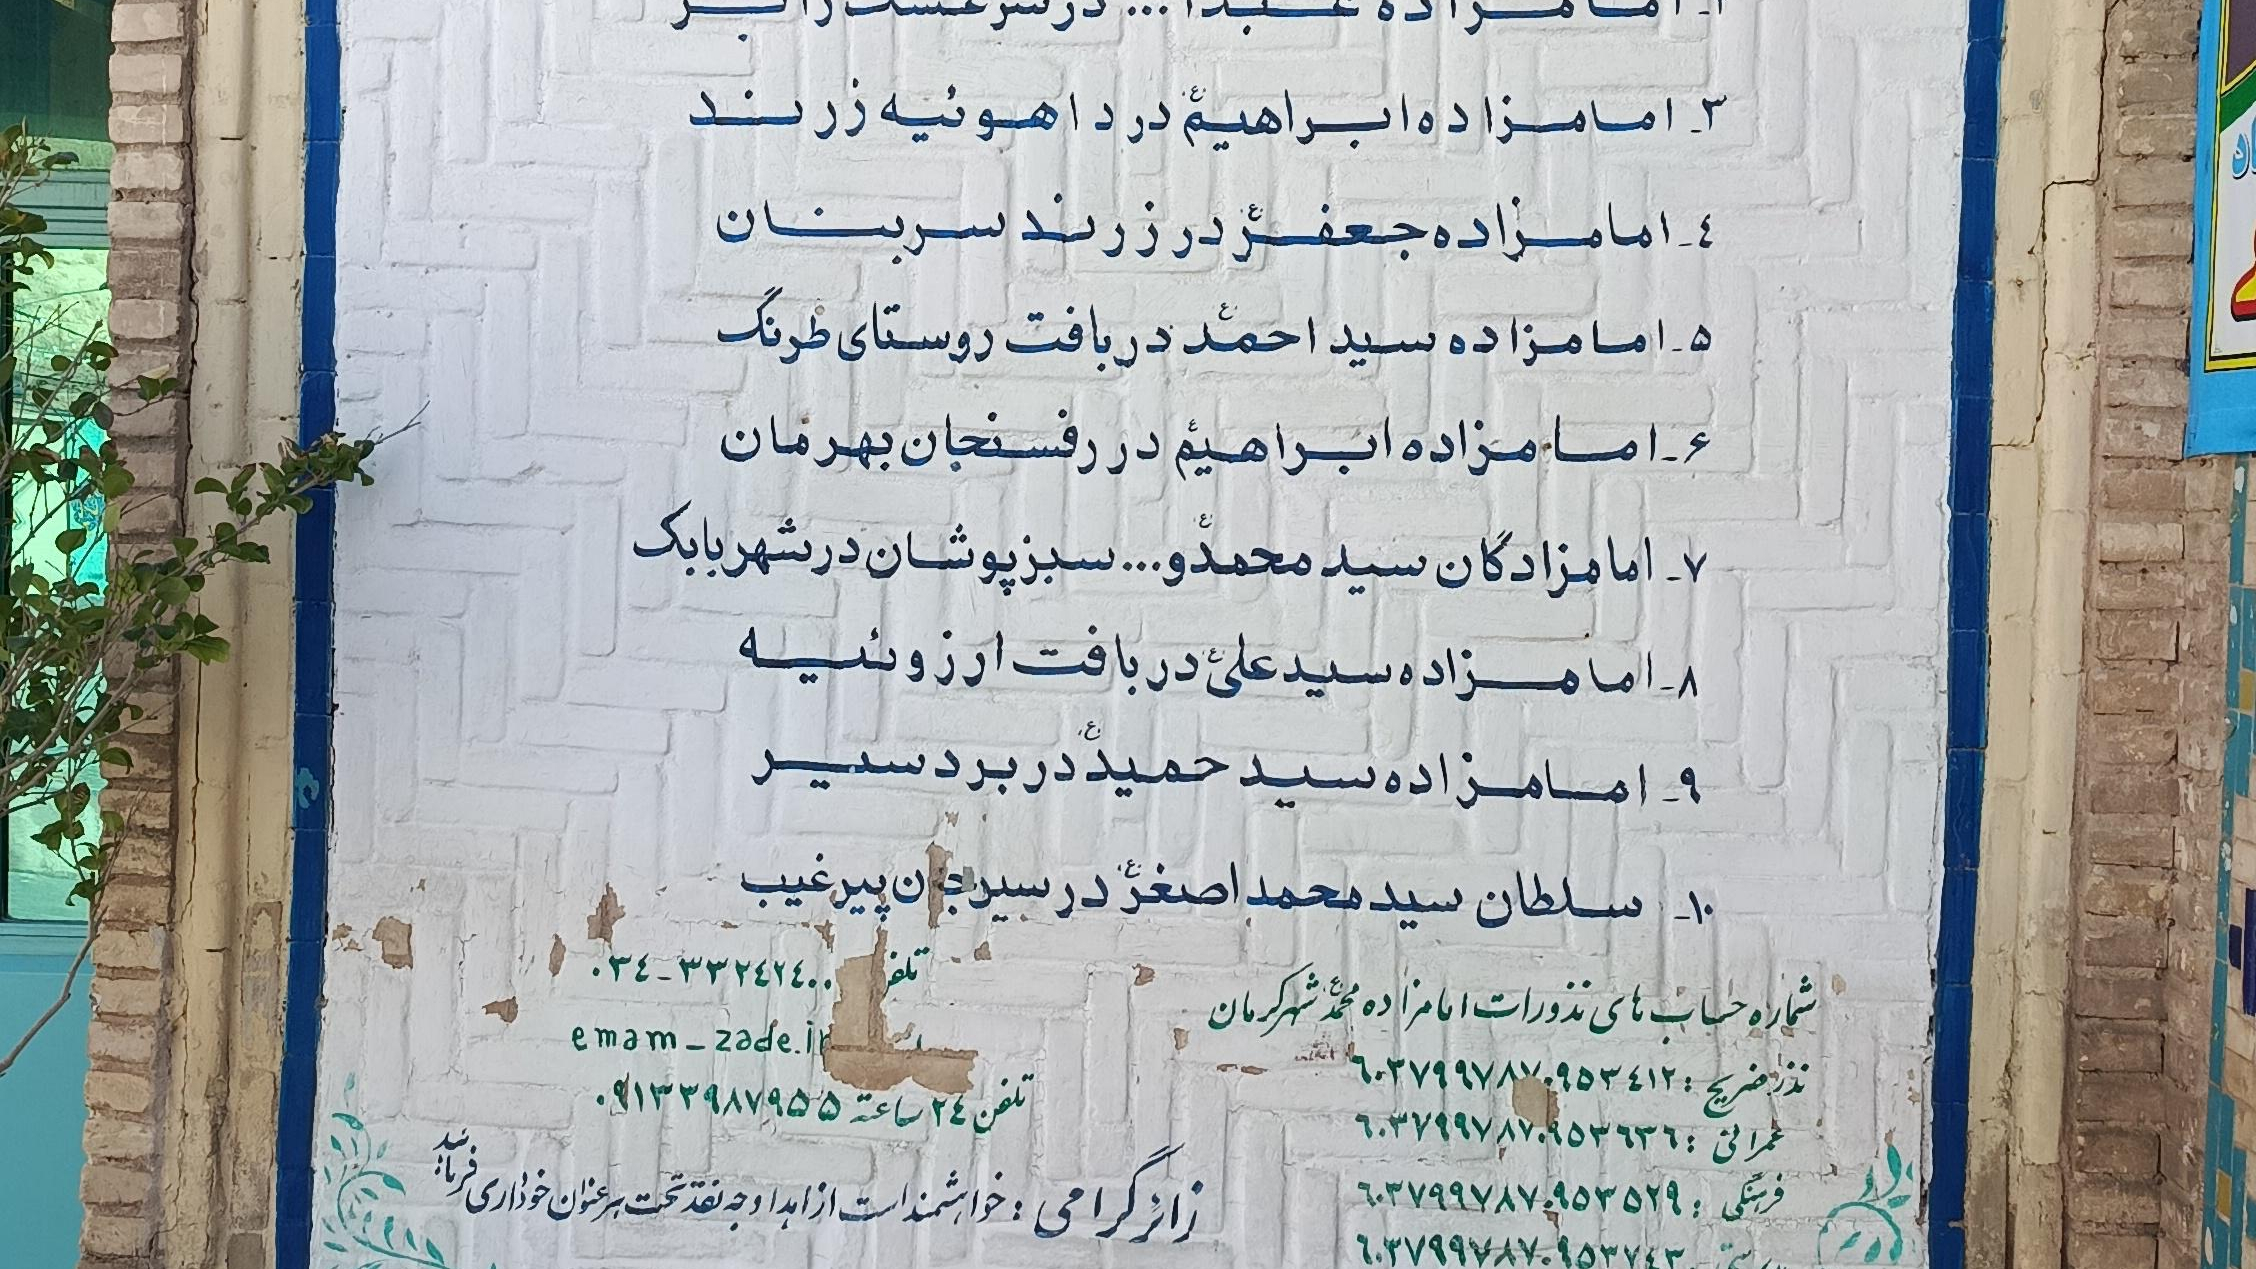 امامزاده عبدا...
۳ـ امامزاده ابراهیم ع در داهوئیه زرند
٤ـ امامزاده جعفر ع در زرند سربنان
۵ـ امامزاده سید احمد ع در بافت روستای طرنگ
۶ـ امامزاده ابراهیم ع در رفسنجان بهرمان
۷ـ امامزادگان سید محمد ع و... سبزپوشان در شهربابک
۸ـ امامزاده سید علی ع در بافت ارزوئیه
۹ـ امامزاده سید حمید ع در بردسیر
۱۰ـ سلطان سید محمد اصغر ع در سیرجان پیرغیب
شماره حساب های نذورات امامزاده محمد ع شهر کرمان
نذر ضریح : ٦۰۳۷۹۹۷۸۷۰۹۵۳٤۱۲
عمرانی : ٦۰۳۷۹۹۷۸۷۰۹۵۳٦۳٦
فرهنگی : ٦۰۳۷۹۹۷۸۷۰۹۵۳۵۲۹
٦۰۳۷۹۹۷۸۷۰۹۵۳۷٤۳
۰۳٤-۳۳۲٤۲٤۰۰
emam_zade.ir
تلفن ۲٤ ساعته ۰۹۱۳۳۹۸۷۹۵۵
زائر گرامی : خواهشمند است از اهدا وجه نقد تحت هر عنوان خودداری فرمائید